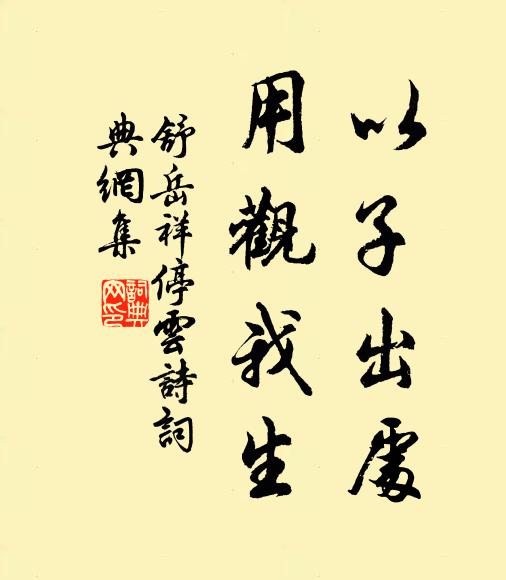 以子出處
用觀我生
舒岳祥停雲詩詞
典網集
詞典網印